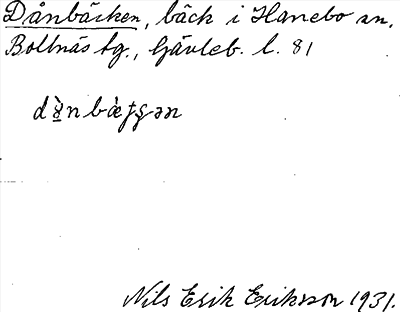 Dånbäcken, bäck i Hanebo sn,
Bollnäs tg., Gävleb. l. 81
Nils Erik Eriksson 1931.